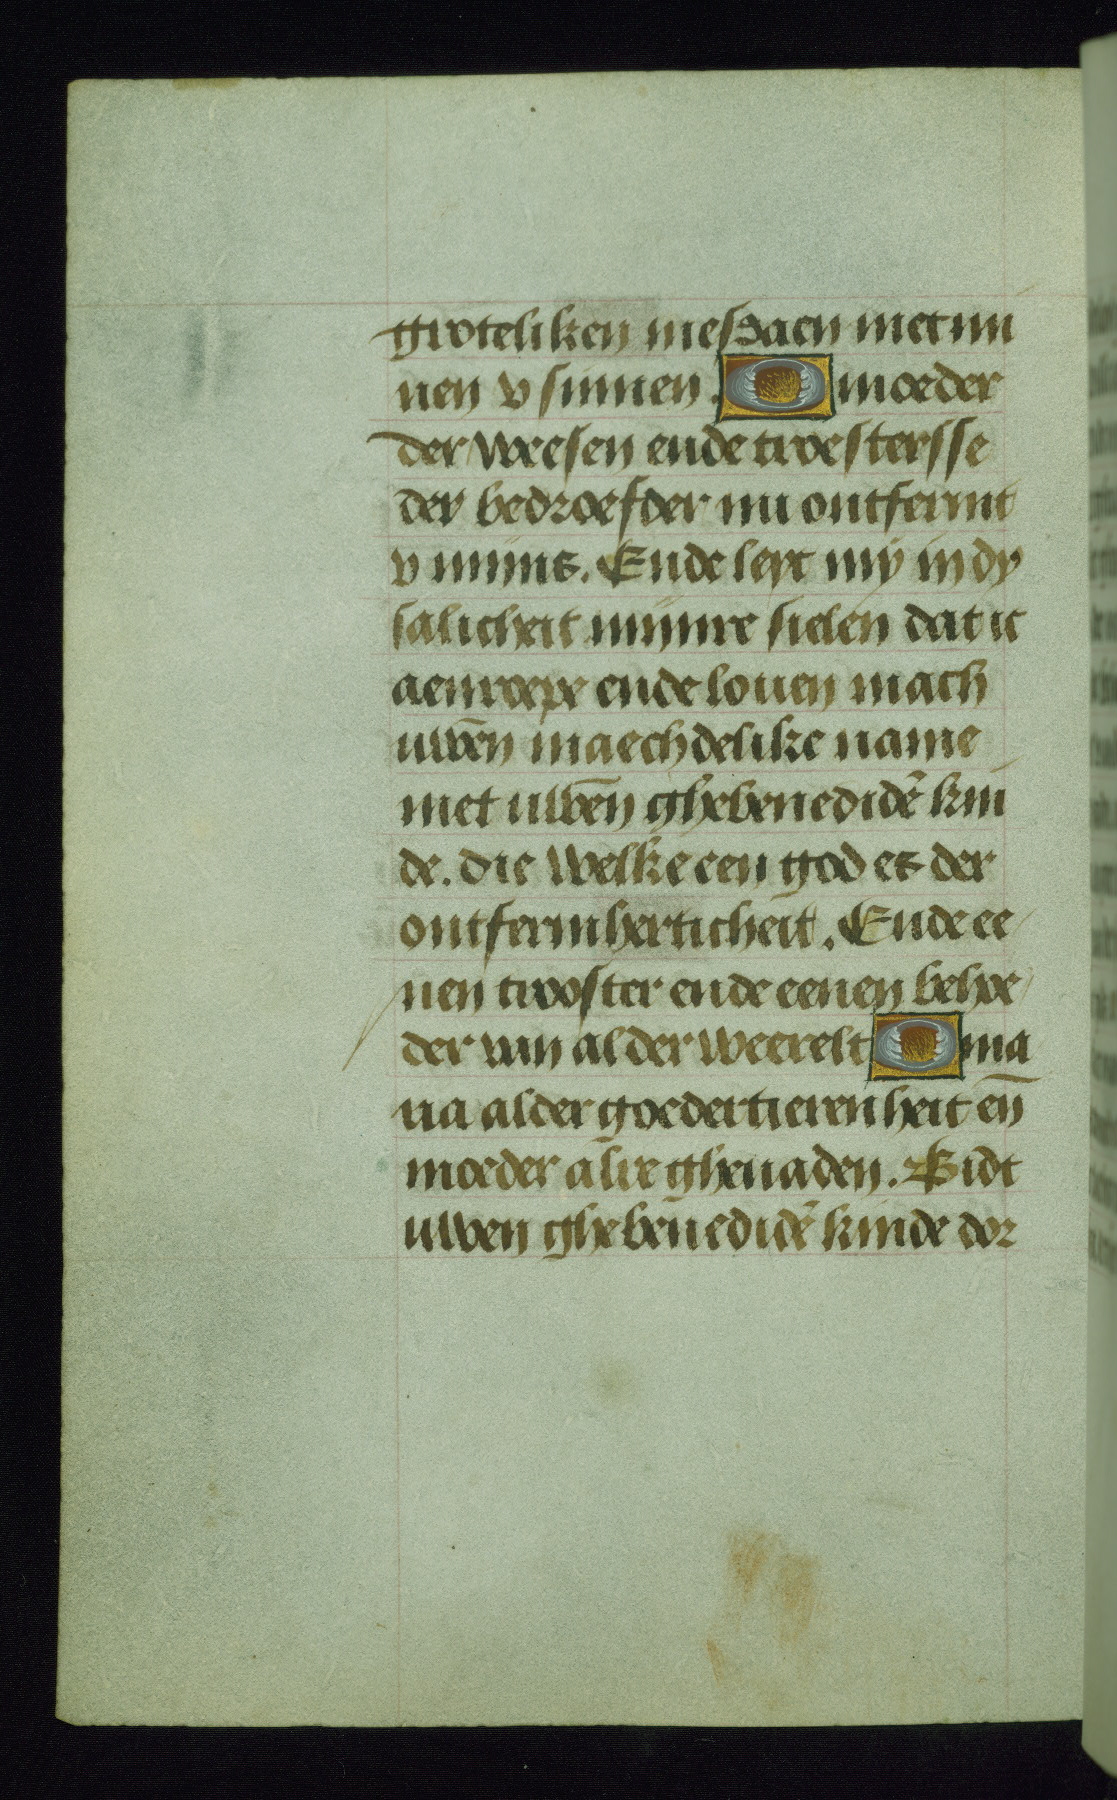 groteliken mesdaen met mi
nen v sinnen. O moeder
der weesen ende troestersse
der bedroefder nu ontfermt
v mijns. Ende leyt my in dy
salicheit mijnre sielen dat ic
aenroepe ende louen mach
uwēn maechdelike name
met uwēn ghebenedidē kin
de. die welke een god es der
ontfermherticheit. Ende ee
nen trooster ende eenen behoe
der van alder weerelt O ma
ria alder goedertierenheit eñ
moeder alre ghenaden. Bidt
uwen ghebenedidē kinde dor